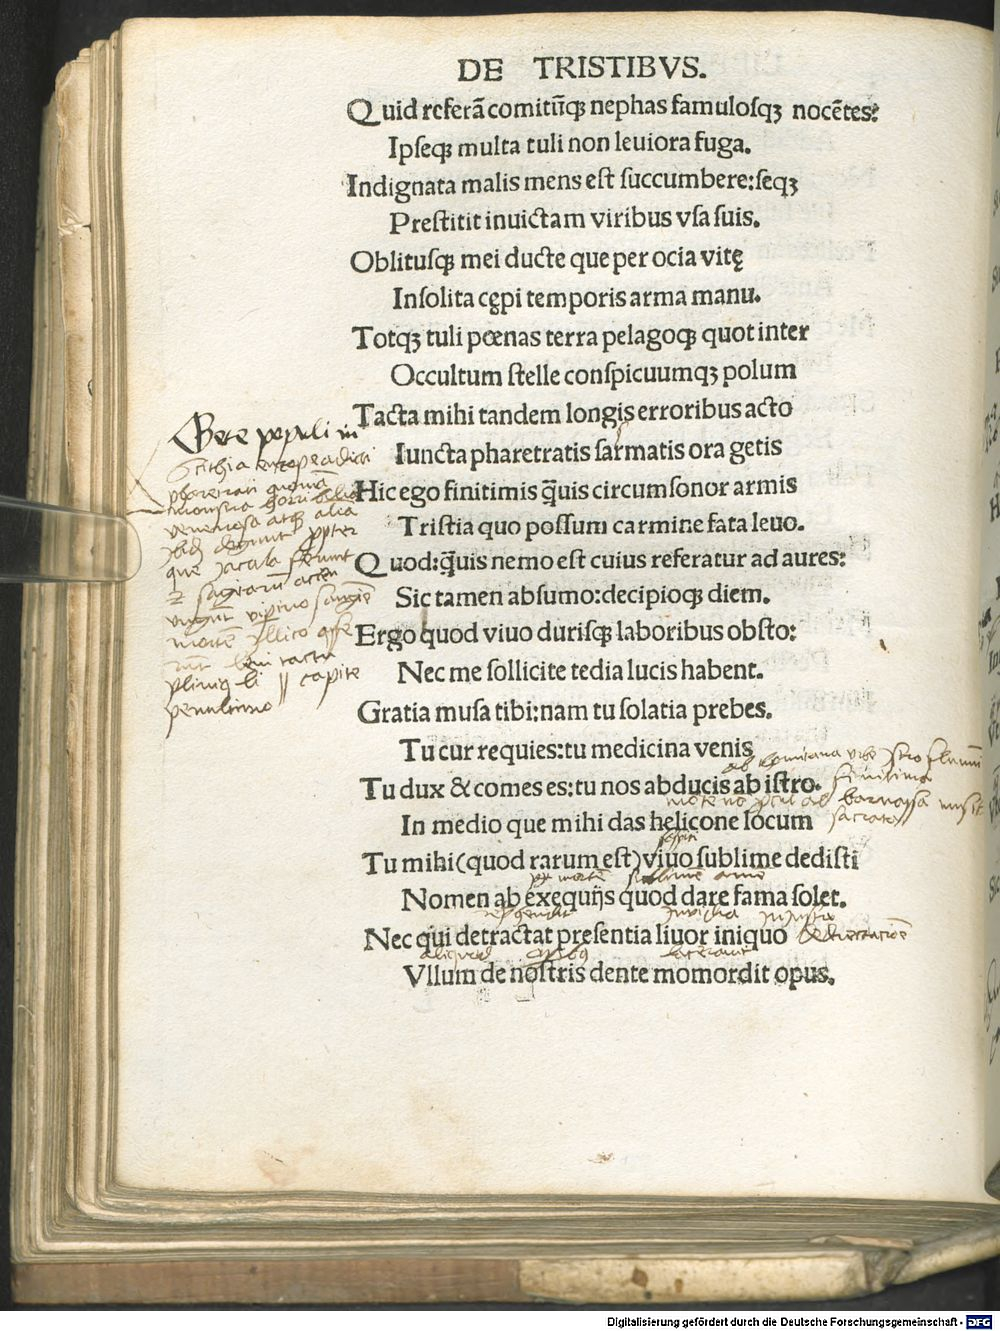 DE TRISTIBVS.
Quid referā comitūqꝫ nephas famuloſqꝫ nocētes?
Ipſeqꝫ multa tuli non leuiora fuga.
Indignata malis mens eſt ſuccumbere:ſeqꝫ
Preſtitit inuictam viribus vſa ſuis.
Oblituſqꝫ mei ducte que per ocia vitę
Inſolita cępi temporis arma manu.
Totqꝫ tuli pœnas terra pelagoqꝫ quot inter
Occultum ſtelle conſpicuumqꝫ polum
Tacta mihi tandem longis erroribus acto
Iuncta pharetratis ſarmatis ora getis
Hic ego finitimis q̄uis circumſonor armis
Triſtia quo poſſum carmine fata leuo.
Quod:q̄uis nemo eſt cuius referatur ad aures:
Sic tamen abſumo:decipioqꝫ diem.
Ergo quod viuo duriſqꝫ laboribus obſto:
Nec me ſollicite tedia lucis habent.
Gratia muſa tibi:nam tu ſolatia prebes.
Tu cur requies:tu medicina venis
Tu dux & comes es:tu nos abducis ab iſtro.
In medio que mihi das helicone locum
Tu mihi(quod rarum eſt)viuo ſublime dediſti
Nomen ab exequijs quod dare fama ſolet.
Nec qui detractat preſentia liuor iniquo
Vllum de noſtris dente momordit opus.
Gete populi in
Scithia
monstra
venenosa atqꝫ alia
sagittarum
mortē illico
capite
penultimo
finitima
sacrato
sublime
iniusta
aliquod
lacerauit
Digitalisierung gefördert durch die Deutsche Forschungsgemeinschaft - DFG